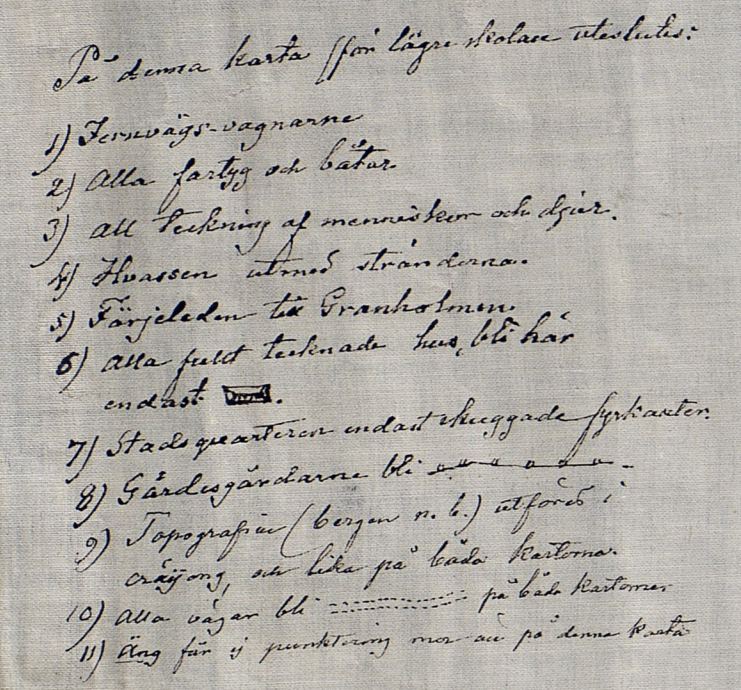 På denna karta (för lägre skolan uteslutes:
1) Jernvägs-vagnarne
2) Alla fartyg och båtar
3) all teckning af menniskor och djur.
4) Hvassen utmed stränderna.
5) Färjeleden till Granholmen.
6) Alla fullt tecknade hus, bli här
endast .
7) Stadsquarteren endast skuggade fyrkanter.
8) Gärdesgårdarne bli
9) Topografin (bergen n. b.) utföres i
crayong, och lika på båda kartorna.
10) Alla vägar bli på båda kartorna
11) Äng får ej punktering mer än på denna karta